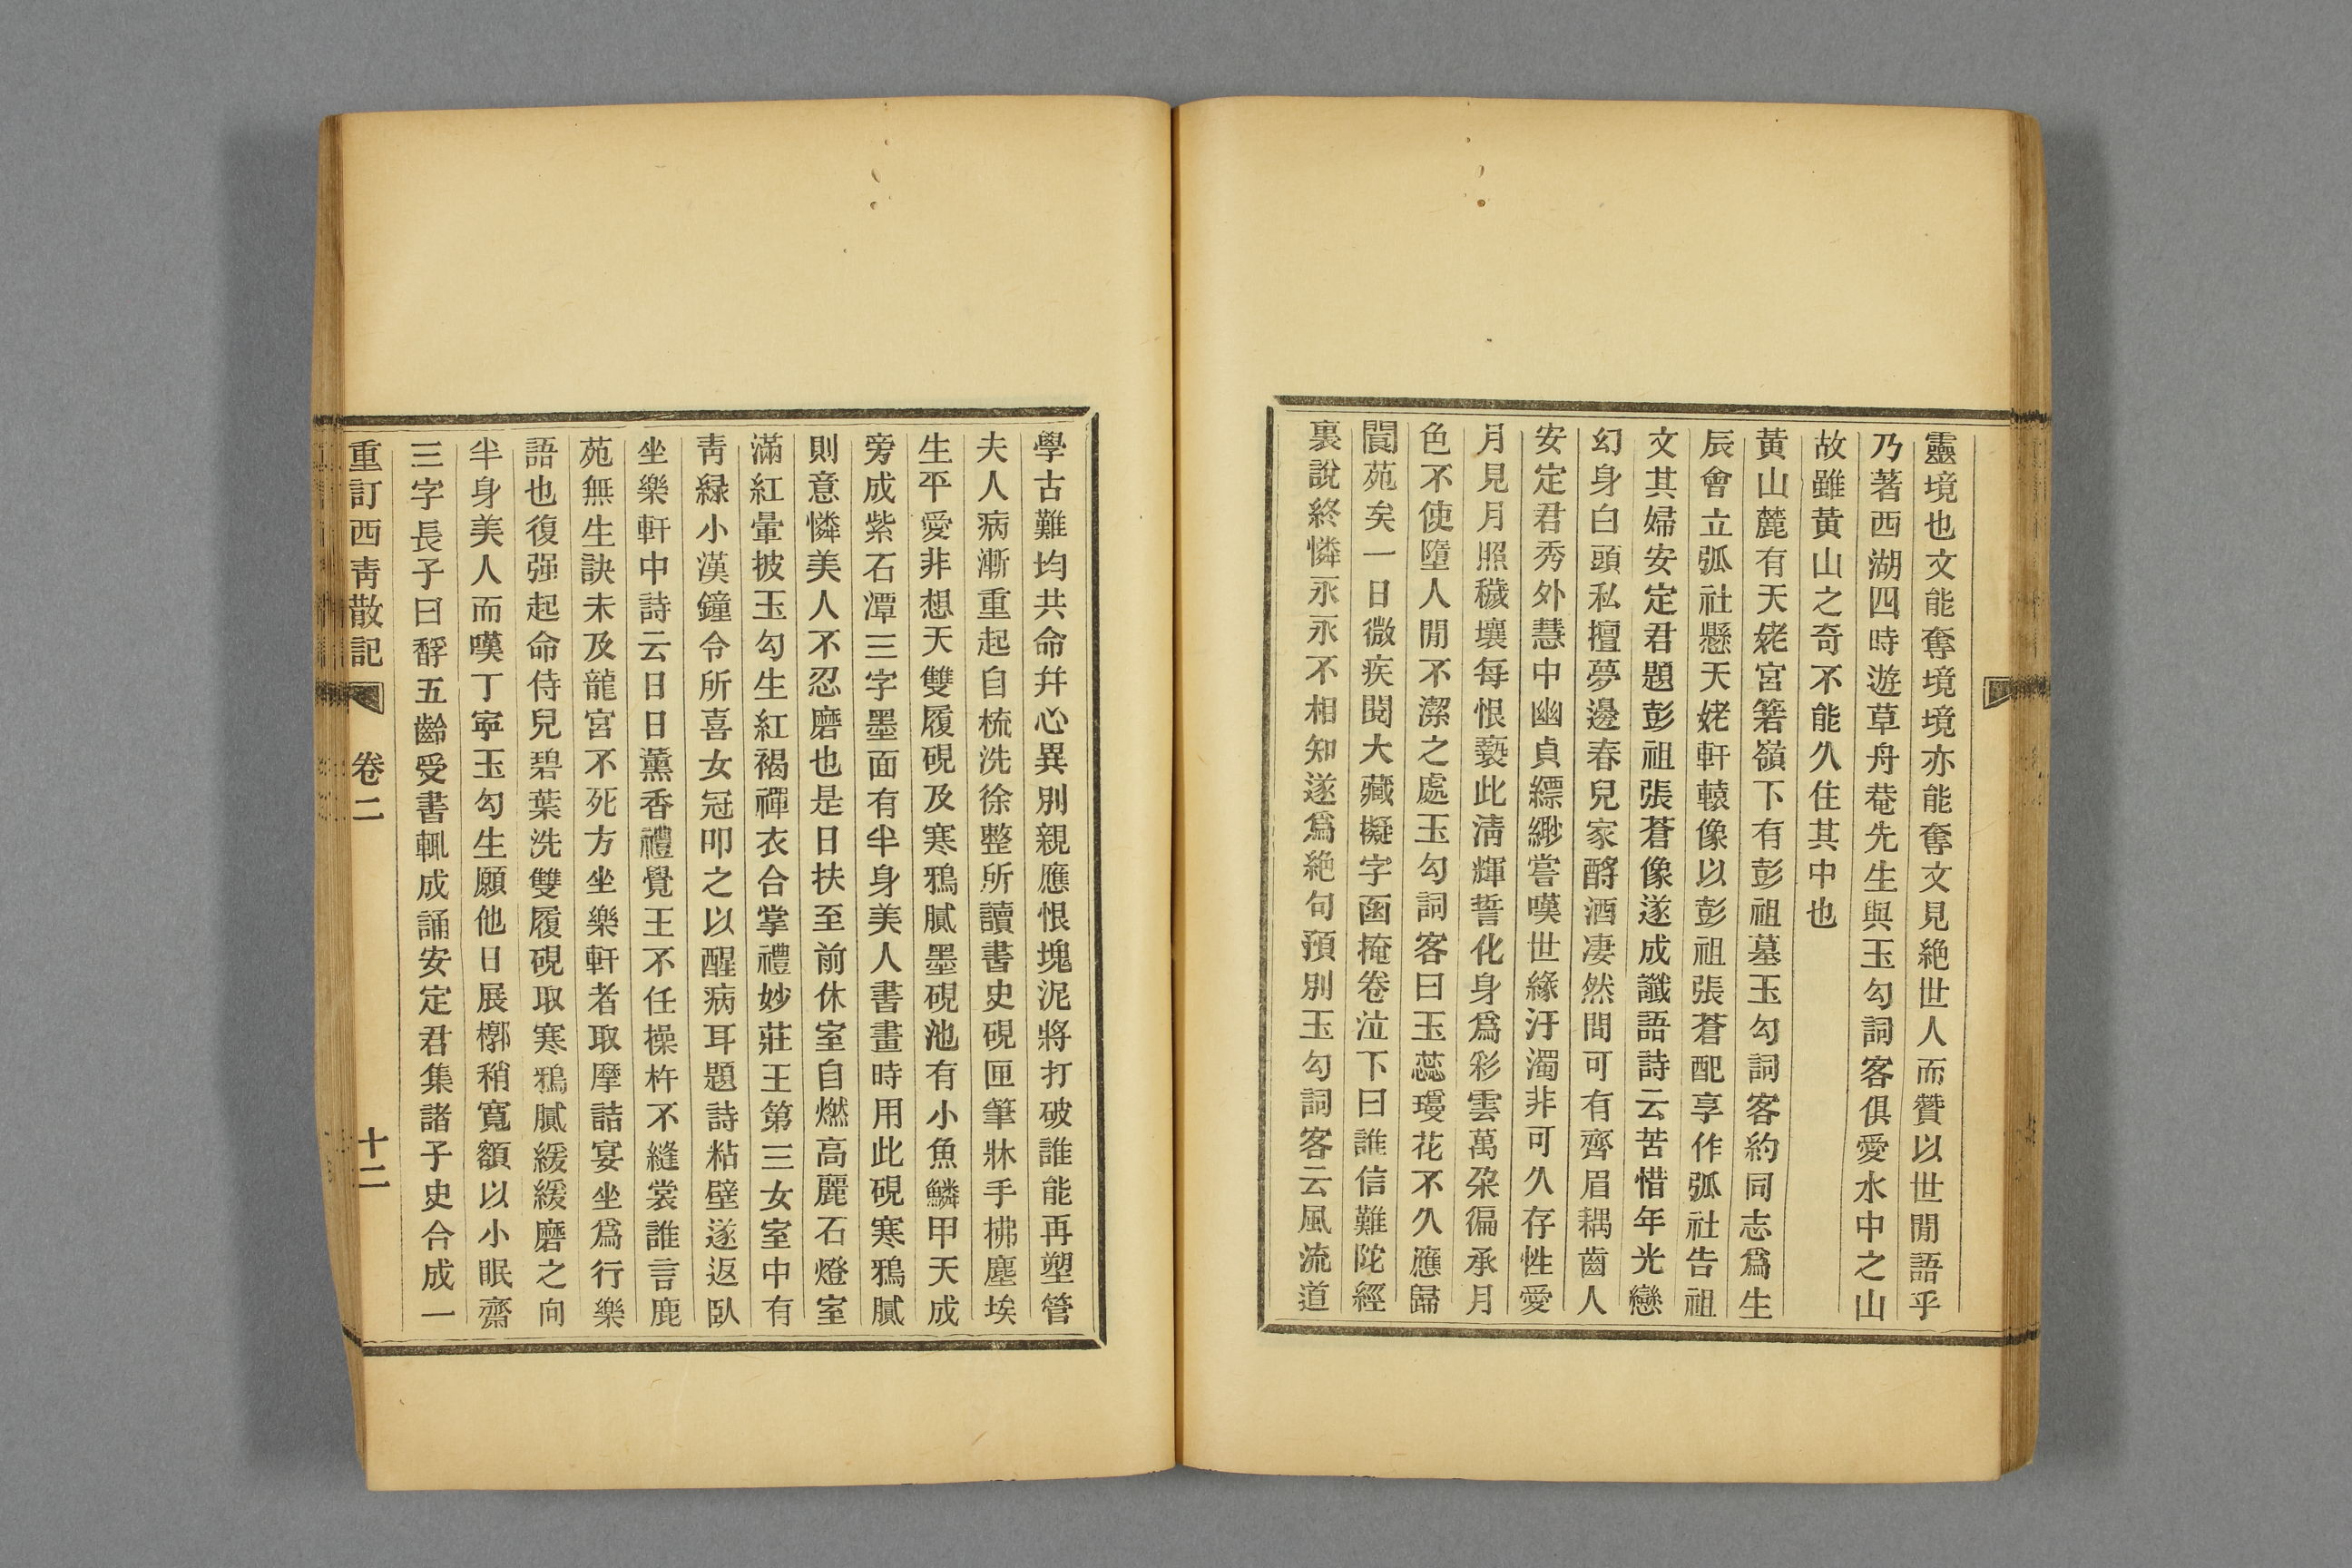 靈境也文能奪境境亦能奪文見絶世人而贊以世閒語乎
乃著西湖四時遊草舟菴先生與玉勾詞客俱愛水中之山
故雖黃山之奇不能久住其中也
黃山麓有天姥宮箬嶺下有彭祖墓玉勾詞客約同志爲生
辰會立弧社懸天姥軒轅像以彭祖張蒼配享作弧社告祖
文其婦安定君題彭祖張蒼像遂成讖語詩云苦惜年光戀
幻身白頭私擅夢邊春兒家酹酒凄然問可有齊眉耦齒人
安定君秀外慧中幽貞縹緲嘗嘆世緣汙濁非可久存性愛
月見月照穢壤每恨褻此淸輝誓化身爲彩雲萬朶徧承月
色不使墮人閒不潔之處玉勾詞客曰玉蕊瓊花不久應歸
閬苑矣一日微疾閱大藏擬字函掩卷泣下曰誰信難陀經
裏說終憐永永不相知遂爲絶句預別玉勾詞客云風流道
學古難均共命幷心異別親應恨塊泥將打破誰能再塑管
夫人病漸重起自梳洗徐整所讀書史硯匣筆牀手拂塵埃
生平愛非想天雙履硯及寒鴉膩墨硯池有小魚鱗甲天成
旁成紫石潭三字墨面有半身美人書畫時用此硯寒鴉膩
則意憐美人不忍磨也是日扶至前休室自燃高麗石燈室
滿紅暈披玉勾生紅褐禪衣合掌禮妙莊王第三女室中有
靑緑小漢鐘令所喜女冠叩之以醒病耳題詩粘壁遂返臥
坐樂軒中詩云日日薰香禮覺王不任操杵不縫裳誰言鹿
苑無生訣未及龍宮不死方坐樂軒者取摩詰宴坐爲行樂
語也復强起命侍兒碧葉洗雙履硯取寒鴉膩緩緩磨之向
半身美人而嘆丁寧玉勾生願他日展槨稍寬額以小眠齋
三字長子曰馥五齡受書輒成誦安定君集諸子史合成一
重訂西靑散記 卷二 十二